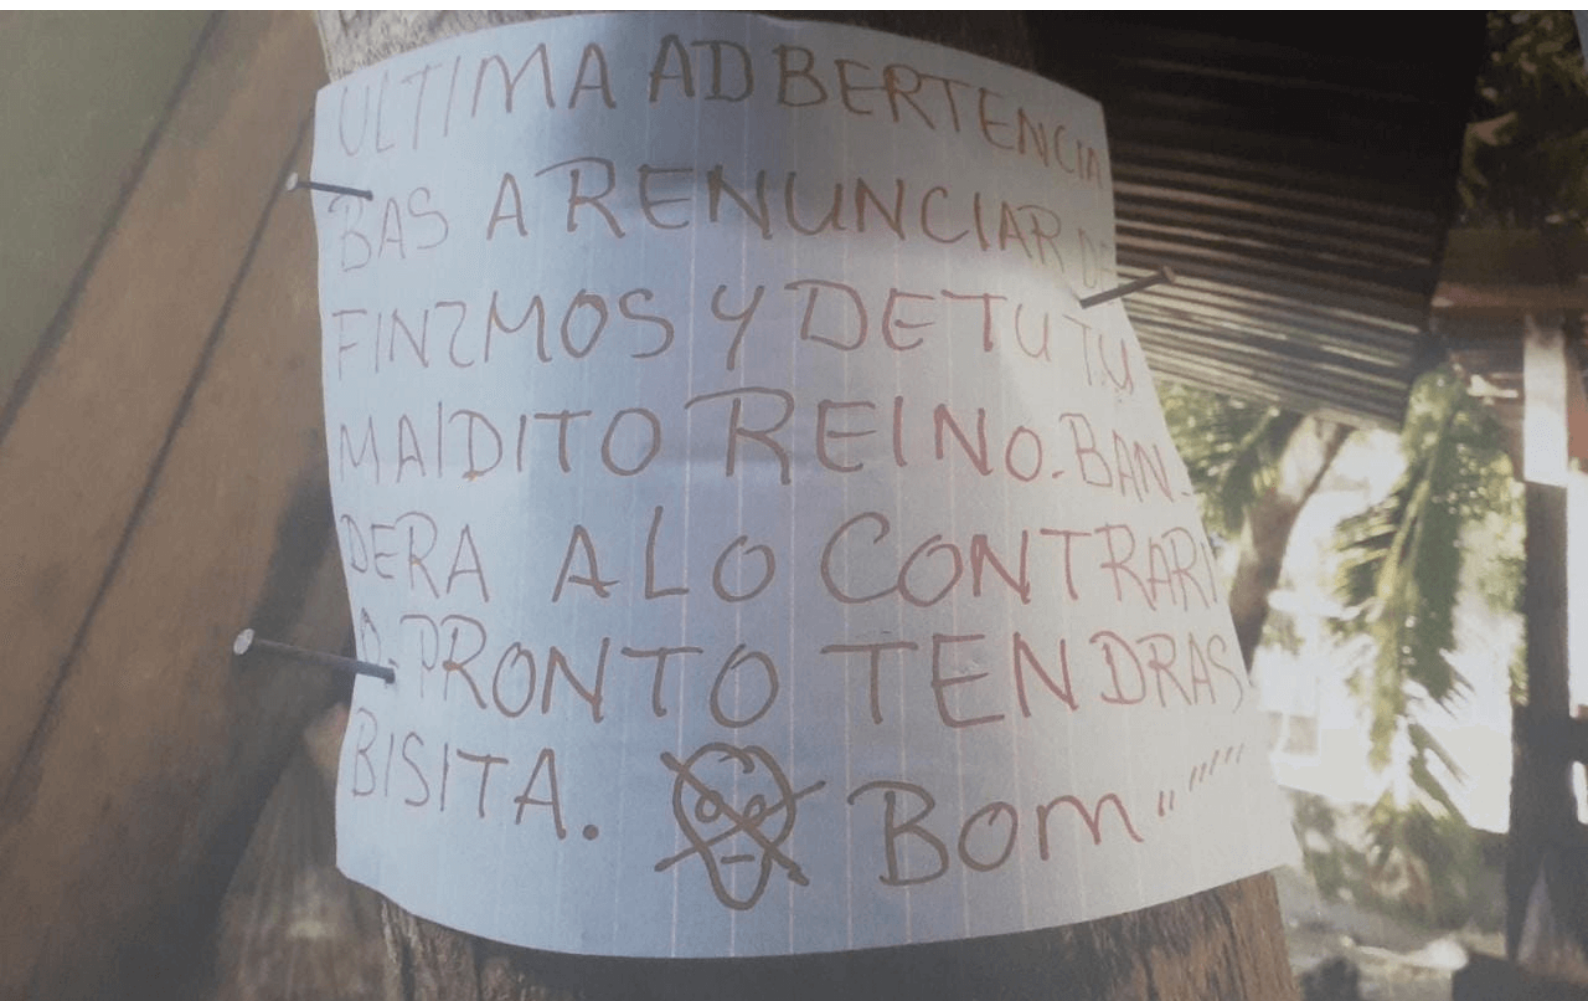 ULTIMA ADBERTENCIA
BAS A RENUNCIAR DE
FINZMOS Y DE TU TU
MALDITO REINO. BAN-
DERA A LO CONTRARI
O. PRONTO TENDRAS
BISITA. BOM """"